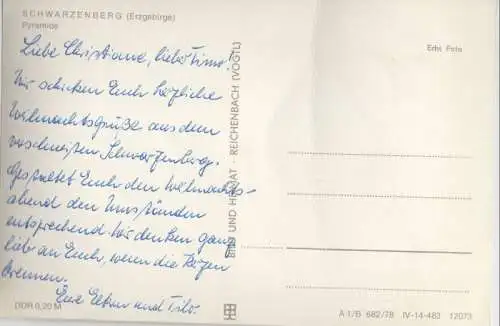 SCHWARZENBERG (Erzgebirge)
Pyramide
Liebe Christiane, lieber Timo!
Wir schicken Euch herzliche
Weihnachtsgrüße aus dem
verschneiten Schwarzenberg.
Gestaltet Euch den Weihnachts-
abend den Umständen
entsprechend. Wir denken ganz
lieb an Euch, wenn die Kerzen
brennen.
Eure Eltern und Tilo.
DDR 0,20 M
BILD UND HEIMAT · REICHENBACH (VOGTL)
Echt Foto
A 1/B 682/78 IV-14-483 12073